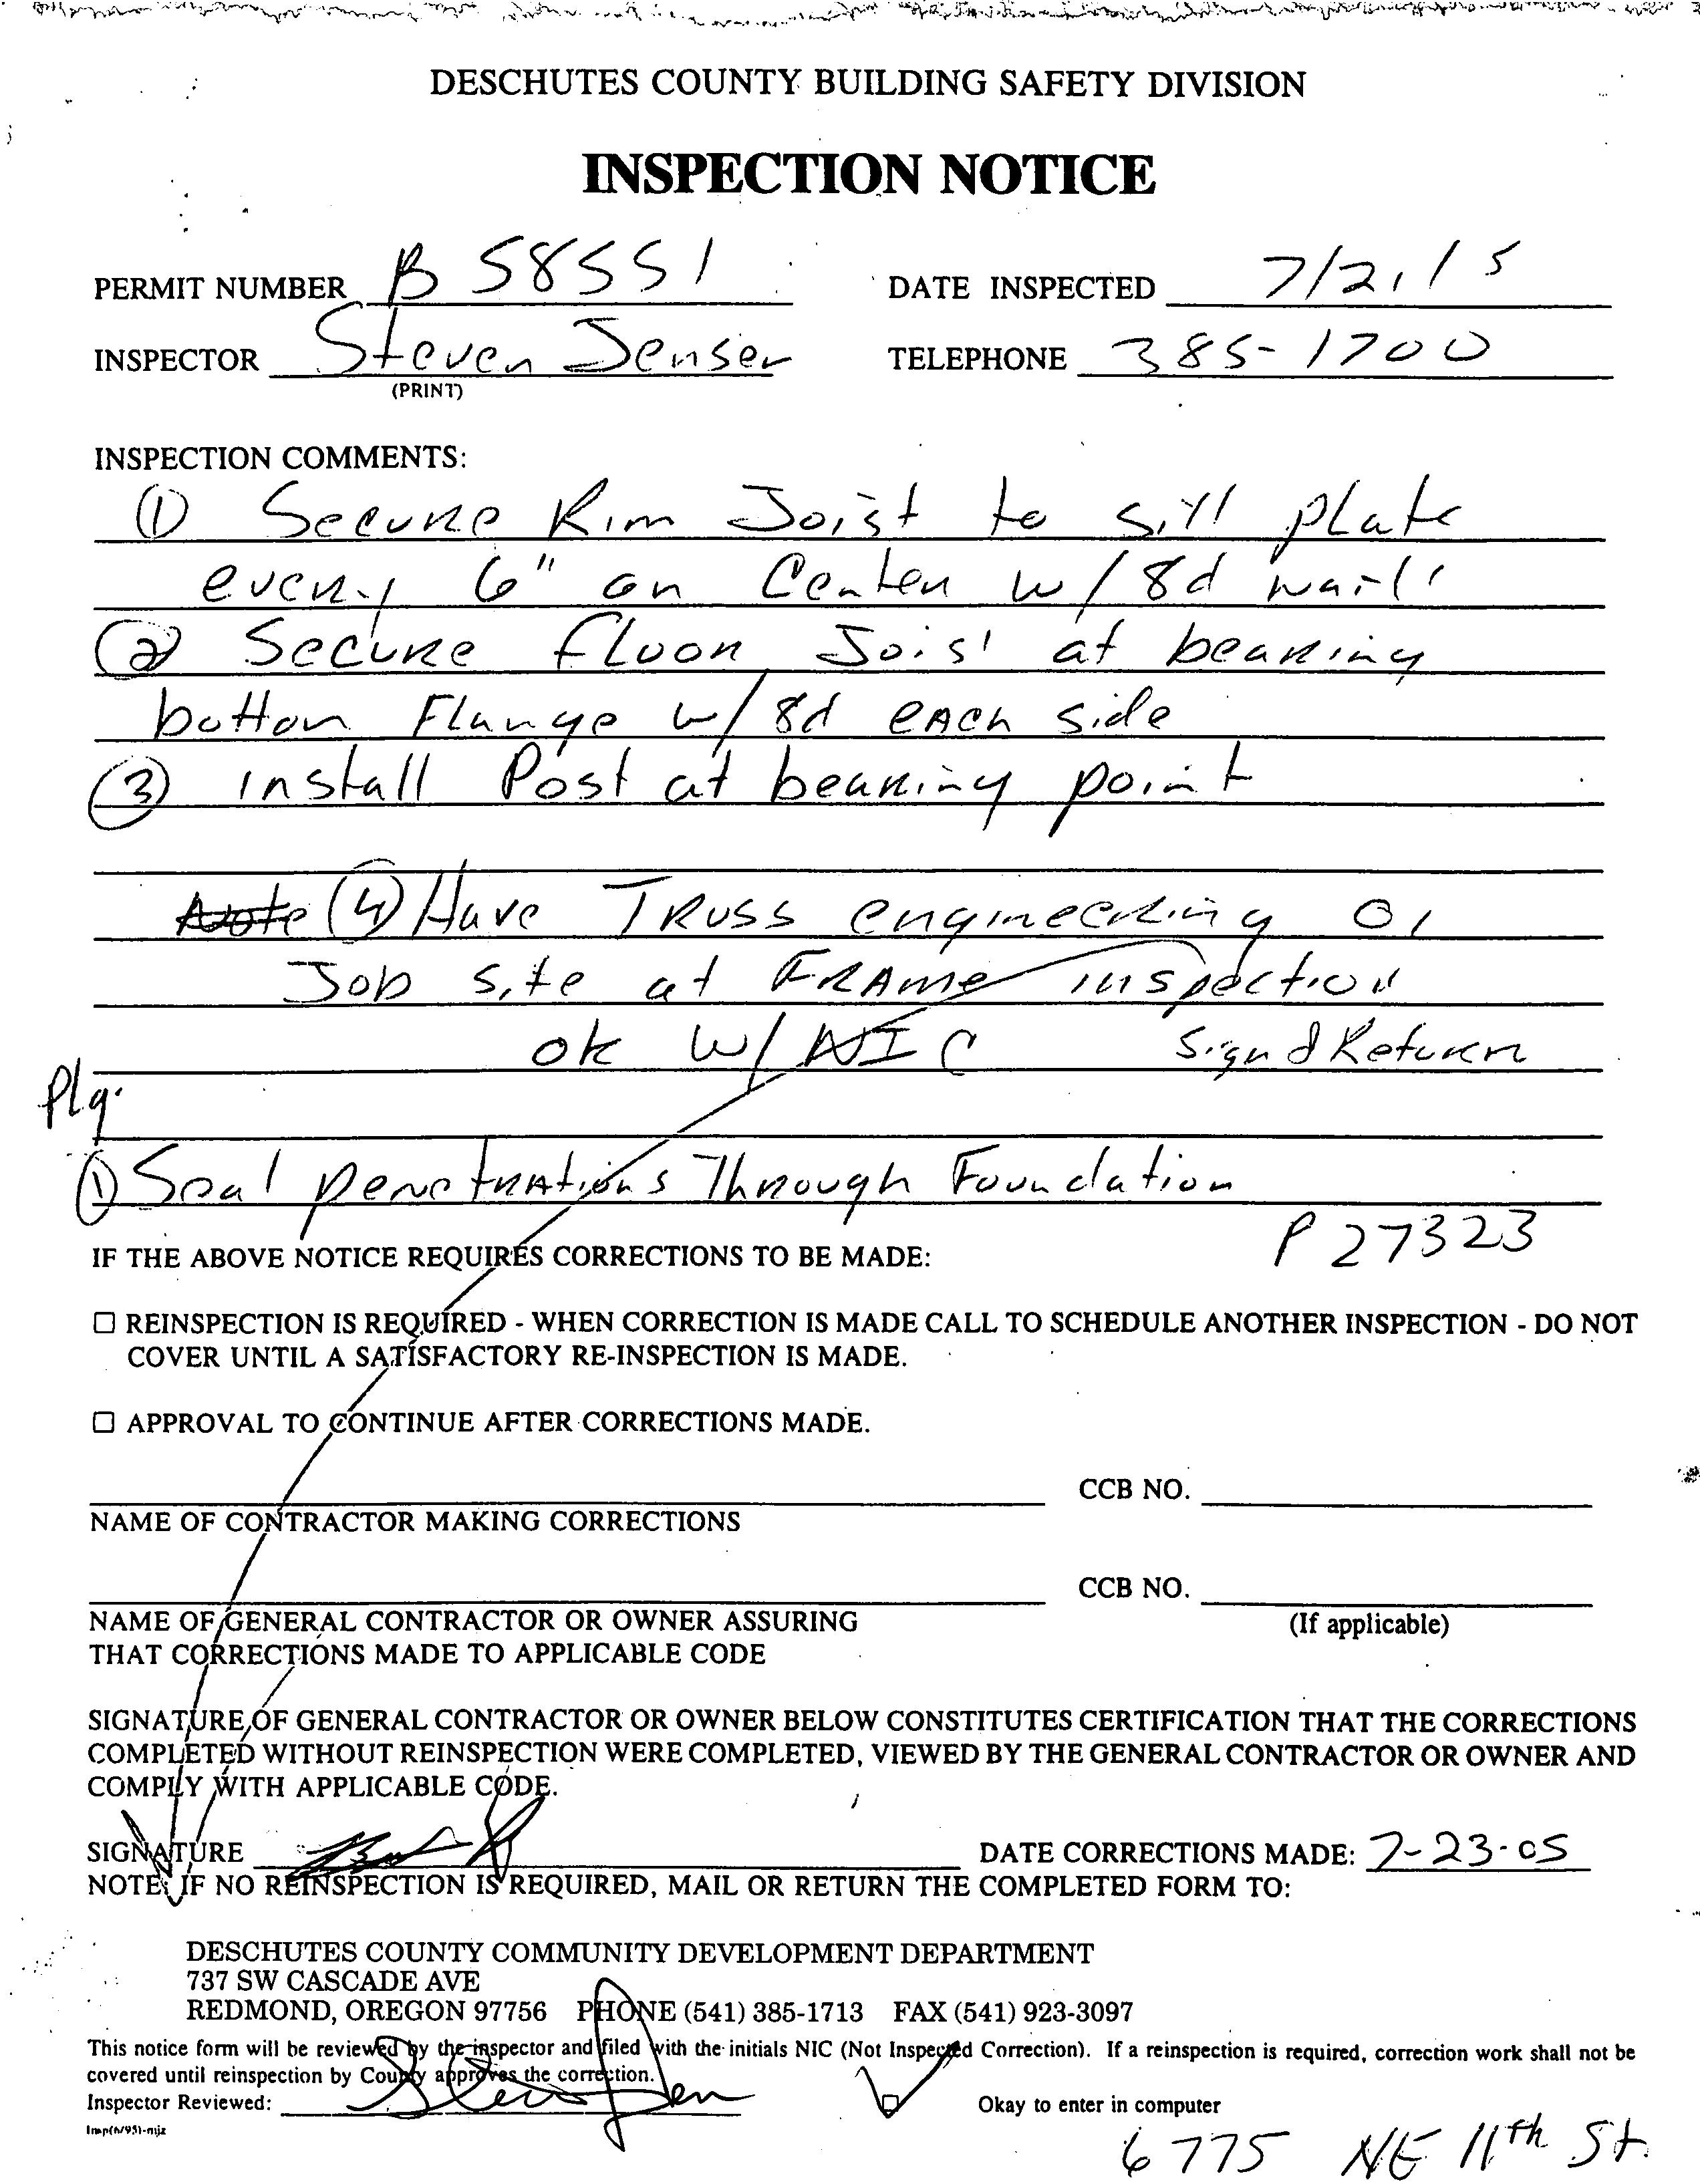 DESCHUTES COUNTY BUILDING SAFETY DIVISION
INSPECTION NOTICE
PERMIT NUMBER B 58551 DATE INSPECTED 7/21/5
INSPECTOR Steven Jensen TELEPHONE 385-1700
(PRINT)
INSPECTION COMMENTS:
① Secure Rim Joist to sill plate
every 6" on Center w/ 8d nails
② Secure floor Joist at bearing
bottom Flange w/ 8d each side
③ install Post at bearing point
Note ④ Have Truss engineering
Job site at FRAme inspection
ok w/ NIC Sign & Return
Plg.
① Seal penetrations Through Foundation
P 27323
IF THE ABOVE NOTICE REQUIRES CORRECTIONS TO BE MADE:
☐ REINSPECTION IS REQUIRED - WHEN CORRECTION IS MADE CALL TO SCHEDULE ANOTHER INSPECTION - DO NOT
COVER UNTIL A SATISFACTORY RE-INSPECTION IS MADE.
☐ APPROVAL TO CONTINUE AFTER CORRECTIONS MADE.
CCB NO.
NAME OF CONTRACTOR MAKING CORRECTIONS
CCB NO.
NAME OF GENERAL CONTRACTOR OR OWNER ASSURING (If applicable)
THAT CORRECTIONS MADE TO APPLICABLE CODE
SIGNATURE OF GENERAL CONTRACTOR OR OWNER BELOW CONSTITUTES CERTIFICATION THAT THE CORRECTIONS
COMPLETED WITHOUT REINSPECTION WERE COMPLETED, VIEWED BY THE GENERAL CONTRACTOR OR OWNER AND
COMPLY WITH APPLICABLE CODE.
SIGNATURE DATE CORRECTIONS MADE: 7-23-05
NOTE: IF NO REINSPECTION IS REQUIRED, MAIL OR RETURN THE COMPLETED FORM TO:
DESCHUTES COUNTY COMMUNITY DEVELOPMENT DEPARTMENT
737 SW CASCADE AVE
REDMOND, OREGON 97756 PHONE (541) 385-1713 FAX (541) 923-3097
This notice form will be reviewed by the inspector and filed with the initials NIC (Not Inspected Correction). If a reinspection is required, correction work shall not be
covered until reinspection by County approves the correction.
Inspector Reviewed: Okay to enter in computer
6775 NE 11th St.